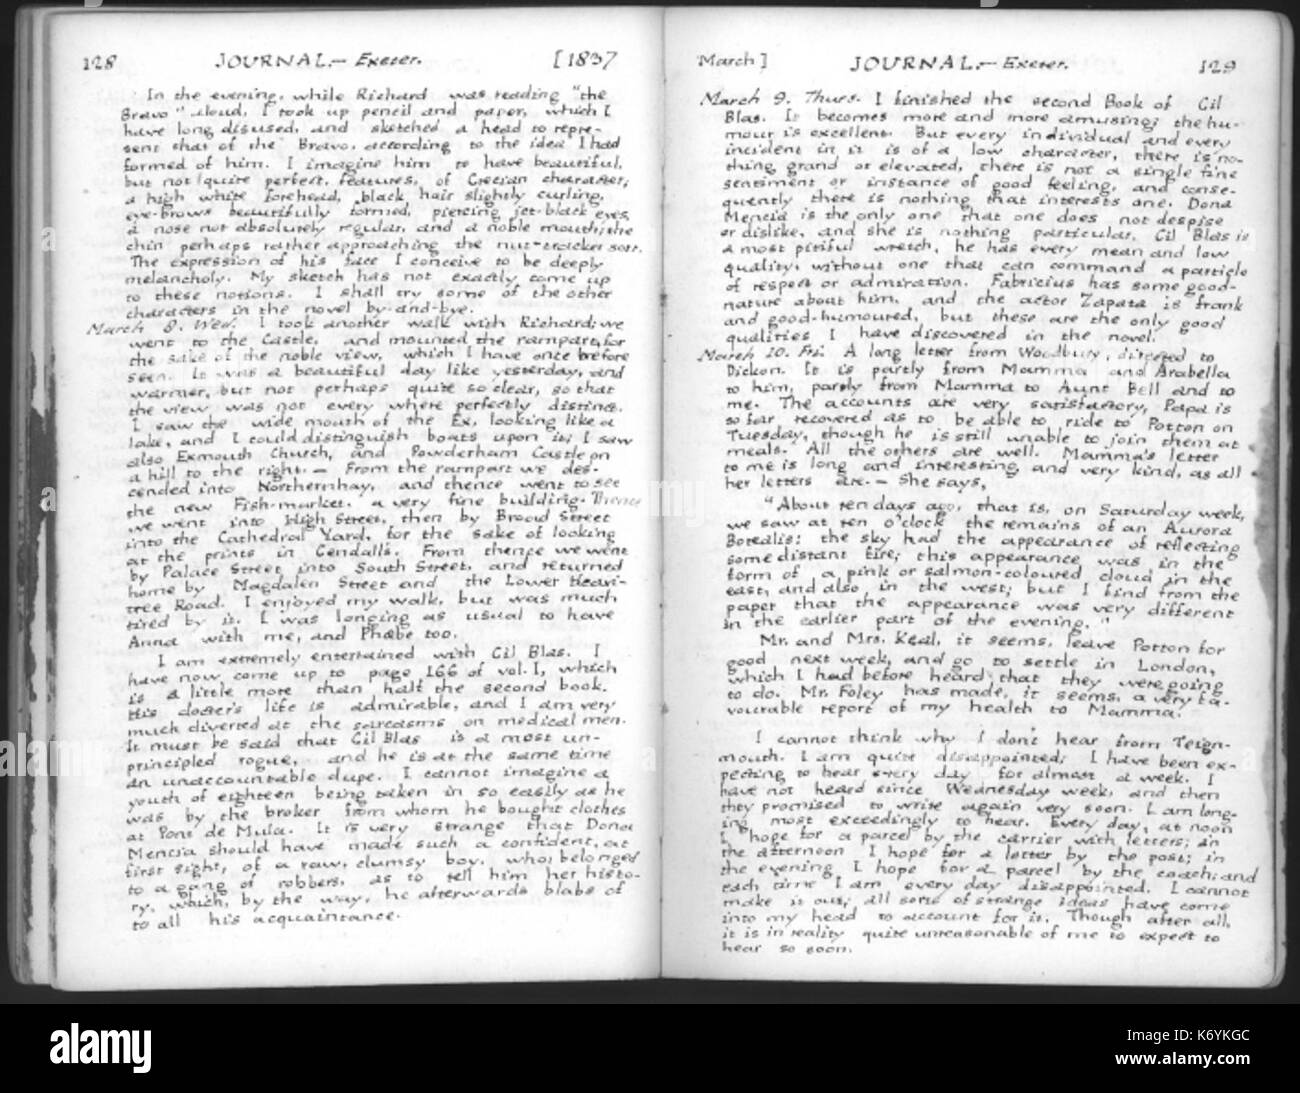 128 JOURNAL.— Exeter. [1837
In the evening, while Richard was reading "the
Bravo" aloud, I took up pencil and paper, which I
have long disused, and sketched a head to repre-
sent that of the Bravo, according to the idea I had
formed of him. I imagine him to have beautiful,
but not quite perfect, features, of Grecian character;
a high white forehead, black hair slightly curling,
eye-brows beautifully formed, piercing jet-black eyes,
a nose not absolutely regular, and a noble mouth; the
chin perhaps rather approaching the nut-cracker sort.
The expression of his face I conceive to be deeply
melancholy. My sketch has not exactly come up
to these notions. I shall try some of the other
characters in the novel by-and-bye.
March 8. Wed. I took another walk with Richard; we
went to the Castle, and mounted the rampart, for
the sake of the noble view, which I have once before
seen. It was a beautiful day like yesterday, and
warmer, but not perhaps quite so clear, so that
the view was not every where perfectly distinct.
I saw the wide mouth of the Ex, looking like a
lake, and I could distinguish boats upon it; I saw
also Exmouth Church, and Powderham Castle on
a hill to the right. — From the rampart we des-
cended into Northernhay, and thence went to see
the new Fish-market, a very fine building. Thence
we went into High Street, then by Broad Street
into the Cathedral Yard, for the sake of looking
at the prints in Cendalls. From thence we went
by Palace Street into South Street, and returned
home by Magdalen Street and the Lower Heavi-
tree Road. I enjoyed my walk, but was much
tired by it. I was longing as usual to have
Anna with me, and Phœbe too.
I am extremely entertained with Gil Blas. I
have now come up to page 166 of vol. I, which
is a little more than half the second book.
His doctor's life is admirable, and I am very
much diverted at the sarcasms on medical men.
It must be said that Gil Blas is a most un-
principled rogue, and he is at the same time
an unaccountable dupe. I cannot imagine a
youth of eighteen being taken in so easily as he
was by the broker from whom he bought clothes
at Pont de Mula. It is very strange that Dona
Mencia should have made such a confident, at
first sight, of a raw, clumsy boy, who belonged
to a gang of robbers, as to tell him her histo-
ry, which, by the way, he afterwards blabs of
to all his acquaintance.
March] JOURNAL.— Exeter. 129
March 9. Thurs. I finished the second Book of Gil
Blas. It becomes more and more amusing; the hu-
mour is excellent. But every individual and every
incident in it is of a low character, there is no-
thing grand or elevated, there is not a single fine
sentiment or instance of good feeling, and conse-
quently there is nothing that interests one. Dona
Mencia is the only one that one does not despise
or dislike, and she is nothing particular. Gil Blas is
a most pitiful wretch, he has every mean and low
quality, without one that can command a particle
of respect or admiration. Fabricius has some good-
nature about him, and the actor Zapata is frank
and good-humoured, but these are the only good
qualities I have discovered in the novel.
March 10. Fri. A long letter from Woodbury, directed to
Dickon. It is partly from Mamma and Arabella
to him, partly from Mamma to Aunt Bell and to
me. The accounts are very satisfactory, Papa is
so far recovered as to be able to ride to Potton on
Tuesday, though he is still unable to join them at
meals. All the others are well. Mamma's letter
to me is long and interesting, and very kind, as all
her letters are. — She says,
"About ten days ago, that is, on Saturday week,
we saw at ten o'clock the remains of an Aurora
Borealis: the sky had the appearance of reflecting
some distant fire; this appearance was in the
form of a pink or salmon-coloured cloud in the
east, and also in the west; but I find from the
paper that the appearance was very different
in the earlier part of the evening."
Mr. and Mrs. Keal, it seems, leave Potton for
good next week, and go to settle in London,
which I had before heard that they were going
to do. Mr. Foley has made, it seems, a very fa-
vourable report of my health to Mamma.
I cannot think why I don't hear from Teign-
mouth. I am quite disappointed; I have been ex-
pecting to hear every day for almost a week. I
have not heard since Wednesday week, and then
they promised to write again very soon. I am long-
ing most exceedingly to hear. Every day, at noon
I hope for a parcel by the carrier with letters; in
the afternoon I hope for a letter by the post; in
the evening I hope for a parcel by the coach; and
each time I am every day disappointed. I cannot
make it out; all sorts of strange ideas have come
into my head to account for it. Though after all,
it is in reality quite unreasonable of me to expect to
hear so soon.
alamy
Image ID: K6YKGC
www.alamy.com